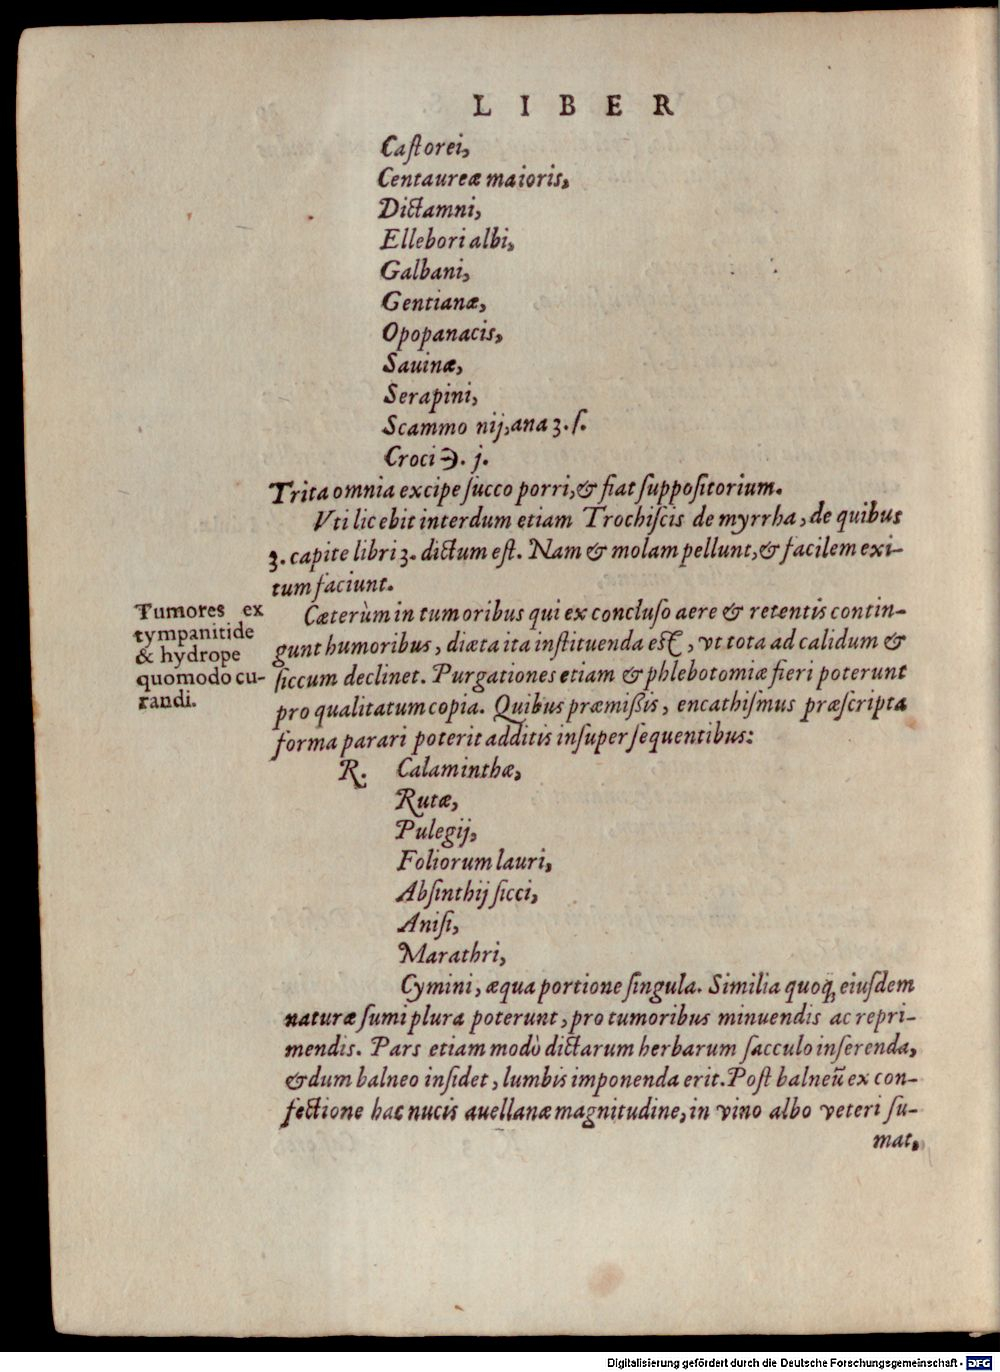 LIBER
Caſtorei,
Centaureæ maioris,
Dictamni,
Ellebori albi,
Galbani,
Gentianæ,
Opopanacis,
Sauinæ,
Serapini,
Scammo nij, ana ʒ. ſ.
Croci ℈. j.
Trita omnia excipe ſucco porri, & fiat ſuppoſitorium.
Vti licebit interdum etiam Trochiſcis de myrrha, de quibus
3. capite libri 3. dictum eſt. Nam & molam pellunt, & facilem exi-
tum faciunt.
Tumores ex
tympanitide
& hydrope
quomodo cu-
randi.
Cæterùm in tumoribus qui ex concluſo aere & retentis contin-
gunt humoribus, diæta ita inſtituenda eſt, vt tota ad calidum &
ſiccum declinet. Purgationes etiam & phlebotomiæ fieri poterunt
pro qualitatum copia. Quibus præmiſsis, encathiſmus præſcripta
forma parari poterit additis inſuper ſequentibus:
R. Calaminthæ,
Rutæ,
Pulegij,
Foliorum lauri,
Abſinthij ſicci,
Aniſi,
Marathri,
Cymini, æqua portione ſingula. Similia quoq; eiuſdem
naturæ ſumi plura poterunt, pro tumoribus minuendis ac repri-
mendis. Pars etiam modò dictarum herbarum ſacculo inſerenda,
& dum balneo inſidet, lumbis imponenda erit. Poſt balneū ex con-
fectione hac nucis auellanæ magnitudine, in vino albo veteri ſu-
mat,
Digitalisierung gefördert durch die Deutsche Forschungsgemeinschaft - DFG